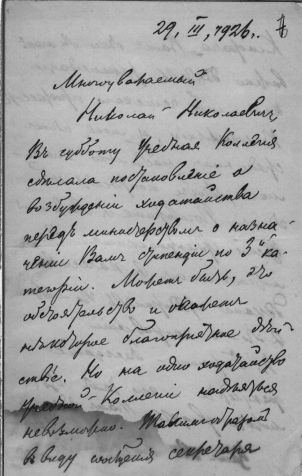 29, III, 1926.
Многоуважаемый
Николай Николаевич
Въ субботу Учебная Коллегія
сдѣлала постановленіе о
возбужденіи ходатайства
передъ министерствомъ о назна-
ченіи Вамъ стипендіи по 3й ка-
тегоріи. Можетъ быть, это
обстоятельство и окажетъ
нѣкоторое благопріятное дѣй-
ствіе. Но на одно ходатайство
Учебной Коллегіи надѣяться
невозможно. Такимъ образомъ
въ виду сообщенія секретаря